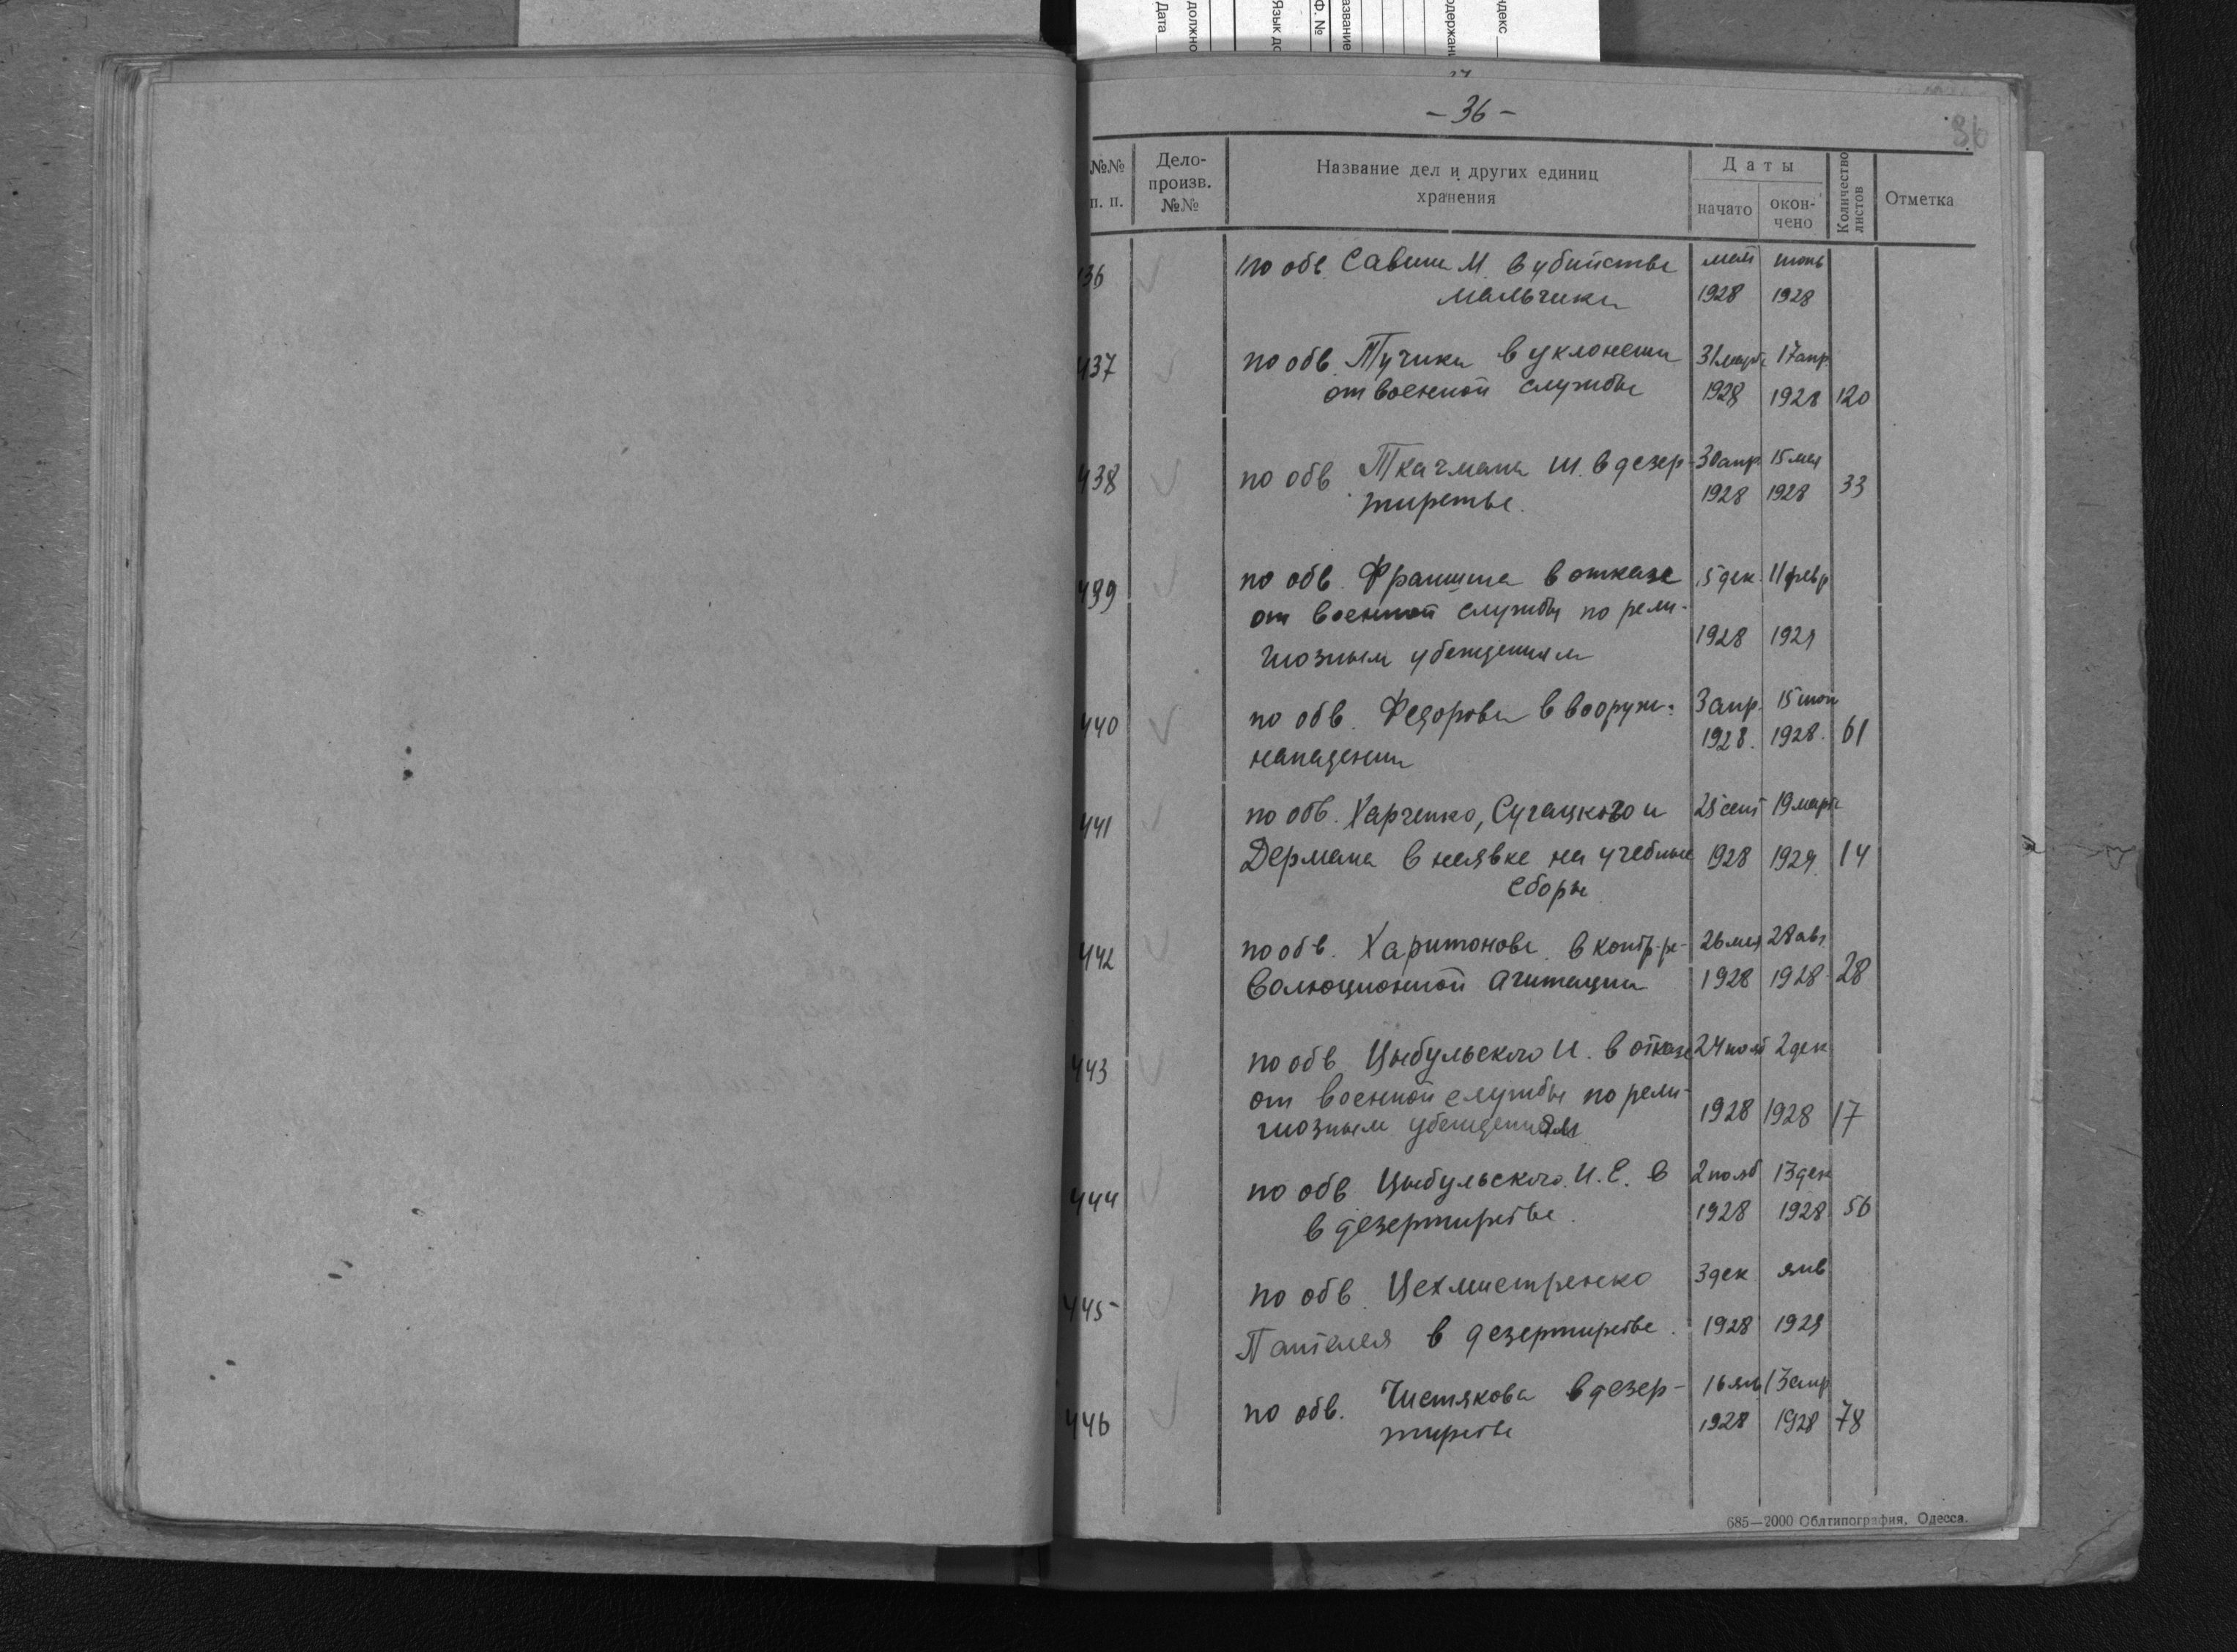 Дата
должно
Язык до
Ф. №
азвание
одержан
ндекс
- 36 -
36
№№ п. п.
Дело-произв. №№
Название дел и других единиц хранения
Даты
начато
окон-чено
Количество листов
Отметка
436 по обв. Савиша М. в убийстве май июнь
мальчика 1928 1928
437 по обв. Тучика в уклонении 31 марта 17 апр.
от военной службы 1928 1928 120
438 по обв Ткачмана Ш. в дезер- 30 апр. 15 мая
тирстве. 1928 1928 33
439 по обв. в отказе 5 дек. 11 февр
от военной службы по рели-
гиозным убеждениям 1928 1929
440 по обв. Федорова в вооруж. 3 апр. 15 июн
нападении 1928. 1928. 61
441 по обв. Харченко, Сугацкого и 25 сент 19 марта
Дермана в неявке на учебные 1928 1929. 14
сборы
442 по обв. Харитонова в контр-ре- 26 мая 28 авг.
волюционной агитации 1928 1928 28
443 по обв. Цыбульского И. в отказе 24 нояб 2 дек
от военной службы по рели- 1928 1928 17
гиозным убеждениям
444 по обв Цыбульского И. Е. в 2 нояб 13 дек
в дезертирстве. 1928 1928 56
445 по обв. Цехмистренко 3 дек янв
Пантелея в дезертирстве. 1928 1929
446 по обв. Чистякова в дезер- 16 янв 13 апр
тирстве 1928 1928 78
685—2000 Облтипография, Одесса.